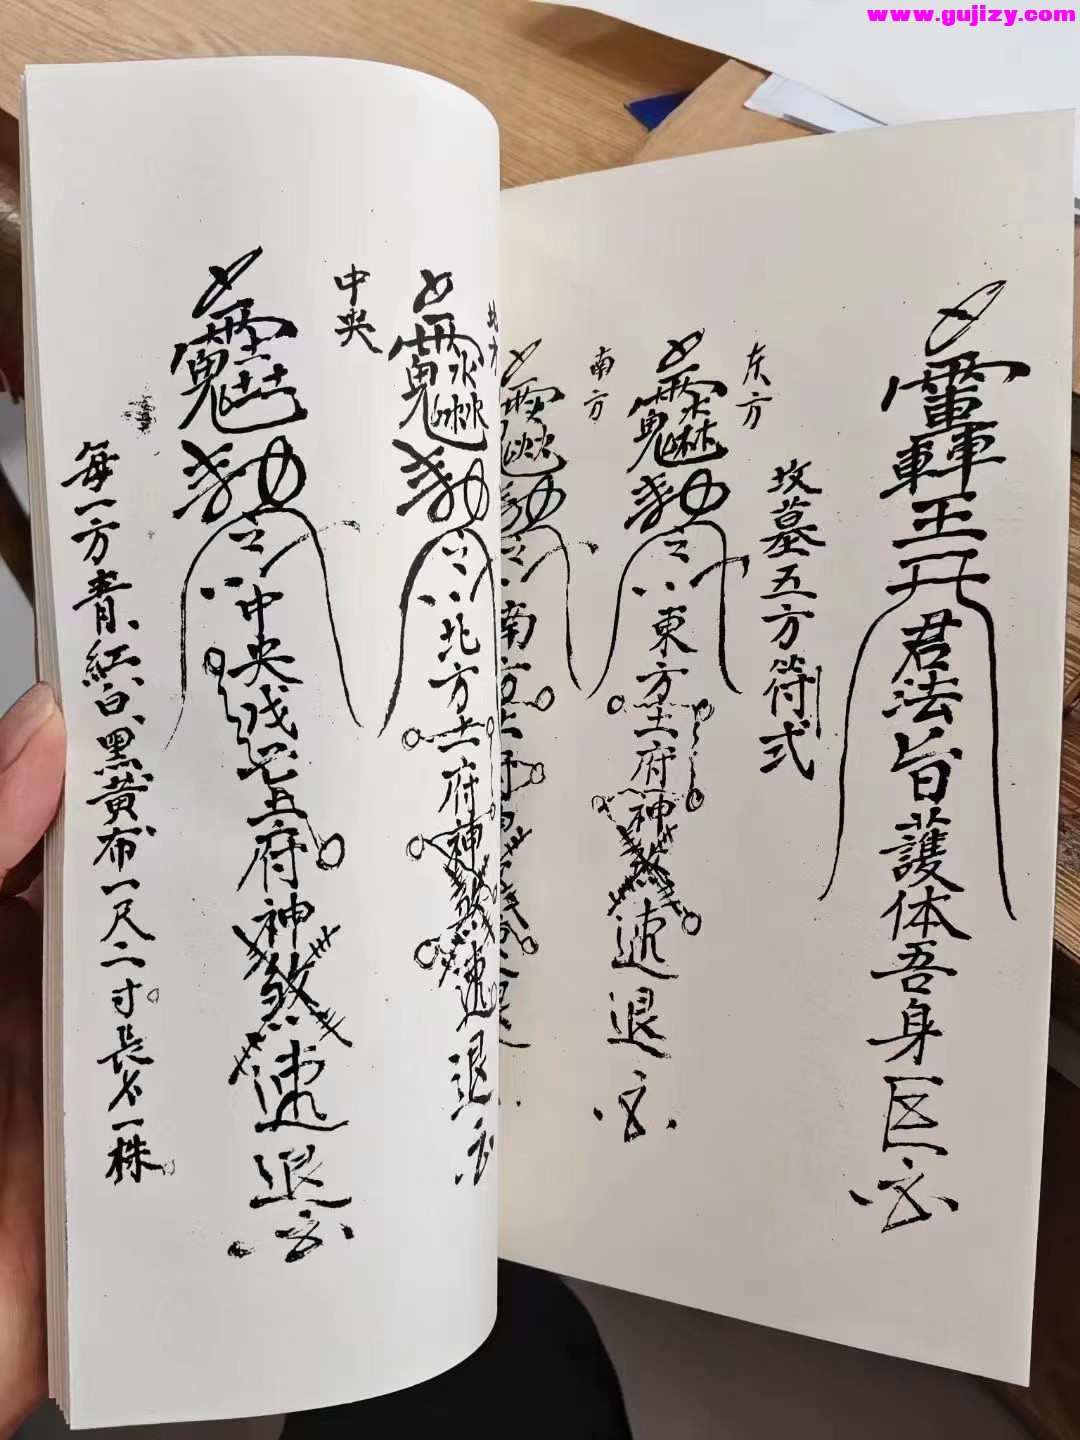 www.gujizy.com
君法旨護体吾身
坟墓五方符式
东方
勅令東方土府神煞速退
南方
勅令南方土府
北方
勅令北方土府神煞速退
中央
勅令中央戊己土府神煞速退
每一方青、紅、白、黑、黄布一尺二寸長
一株